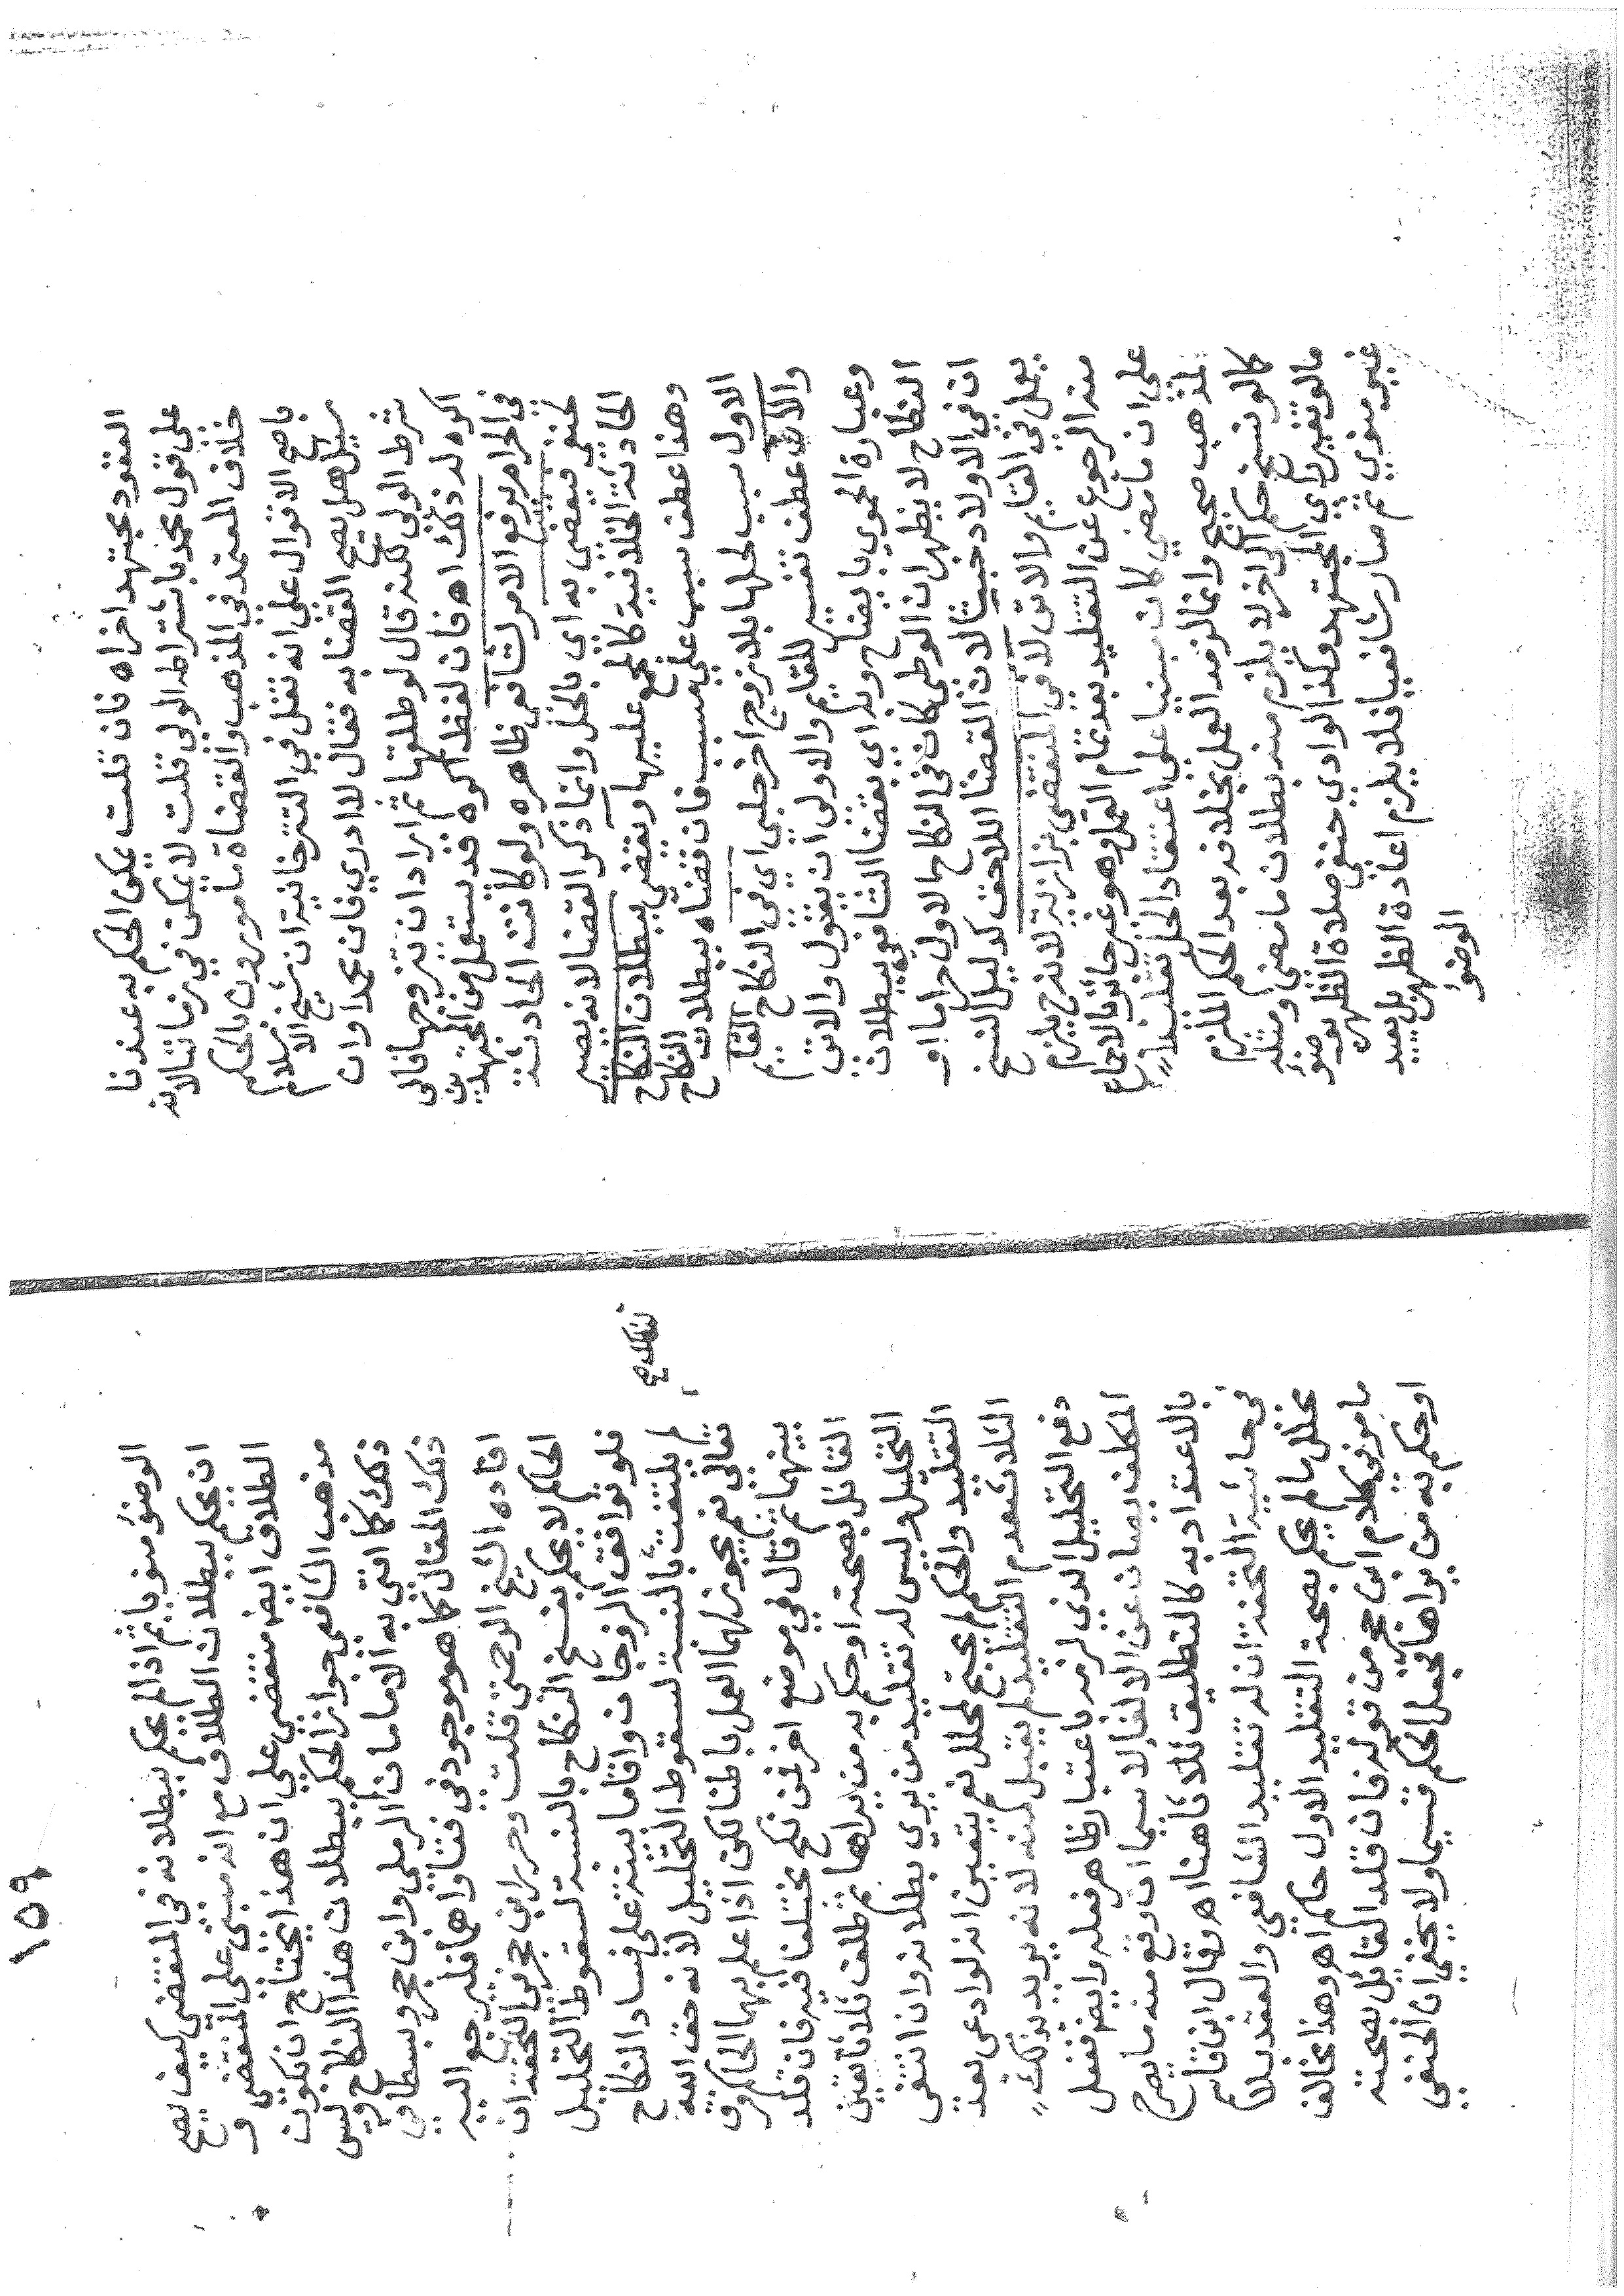 العقود مجتهد اخراه فان قلت يمكن الحكم به عندنا
على قول محمد باشتراط الولي قلت لا يمكن في زماننا لانه
خلاف المعتمد في المذهب والقضاة مامورون بالحكم
باصح الاقوال على انه نقل في التترخانية ان شيخ الاسلام
سيل هل يصح القضا به فقال لا ادري فان محمدا وان
شرط الولي لكنه قال لو طلقها ثم اراد ان يتزوجها فاني
اكره له ذلك اه فان لفظ اكره قد يستعمل من المجتهدين
في الحرام يرفع الامر لشافعي ظاهره ولو كانت الحادثة
لحنفي فيقضي به اي بالحل وانما ذكر القضا لانه يصير
الحادثة الخلافية كالمجمع عليها وبقضي ببطلان النكاح
وهنا عطف سبب على مسبب فان قضاه ببطلان النكاح
الاول سبب لحلها بلا زوج اخر حلبي اي في النكاح القائم
والآن عطف تفسير للقايم والاولى ان يقول والاتي
وعبارة الحموي بايضاح وبه اي بقضا الشافعي ببطلان
النكاح لا يظهر ان الوطي كان في النكاح الاول حراما او
ان في الاولاد خبثا لان القضا اللاحق كدليل النسخ
يعمل في القايم والاتي لا في المنقضي بزازية لانه ح يلزم
منه الرجوع عن التقليد بعد تمام العمل وهو غير جائز بالاجماع
على ان ما مضي كان مبنيا على اعتقاد الحل تقليدا
لمذهب صحيح وانما لزمه العمل بخلافه بعد الحكم الملزم
كما لو نسخ حكم الى اخر لا يلزم منه بطلان ما مضى ومثله
ما لو تغير راي المجتهد وكذا لو ادي حنفي صلاة الظهر بوضوء
غير منوي ثم صار شافعيا فلا يلزم اعادة الظهر بل يعيد
الوضوء
١٥٩
الوضوء منويا ثم اذا لم يحكم ببطلانه في المنقضي كيف يصح
ان يحكم ببطلان الطلاق مع انه مبني على المنقضي و
الطلاق ايضا منقضي على ان هذا يحتاج ان يكون
مذهب الشافعي جواز الحكم ببطلان هذا النكاح وليس
ذلك كما افتى به الامامان الرملي وابن حجر وبسطا في
ذلك المقال كما هو موجود في فتاواهما فليرجع اليه
افاده الشيخ الرحمتي قلت وحرر ابن حجر في التحفة ان
الحاكم لا يحكم بفسخ النكاح بالنسبة لسقوط التحليل
فلو توافقت الزوجان واقاما بينة على فساد النكاح
لم يلتفت بالنسبة لسقوط التحليل لانه حق الله
تعالى نعم يجوز لهما العمل باطنا لكن اذا علم بهما الحاكم فرق
بينهما ثم قال في موضع اخر فمن نكح مختلفا فيه فان قلد
القائل بصحته او حكم به من يراها ثم طلقت ثلاثا تعين
التحليل وليس له تقليد من يري بطلانه وان انتفى
التقليد والحكم لم يحتج لمحلل نعم يتعين انه لو ادعى بعد
الثلاث عدم التقليد لم يقبل منه لانه يريد بذلك
دفع التحليل الذي لزمه باعتبار ظاهر فعله وايضا ففعل
المكلف يصان عن الالغا لا سيما ان وقع منه ما يصرح
بالاعتداد به كالتطليق ثلاثا هنا اه وقال ابن قاسم
في حاشية التحفة ان له تقليد الشافعي والعقد بلا
محلل ما لم يحكم بصحة التقليد الاول حاكم اه وهذا مخالف
ما مر في كلام ابن حجر من قوله فان قلد القائل بصحته
او حكم به من يراها فجعل الحكم قسيما ولا يخفى ان الحنفي